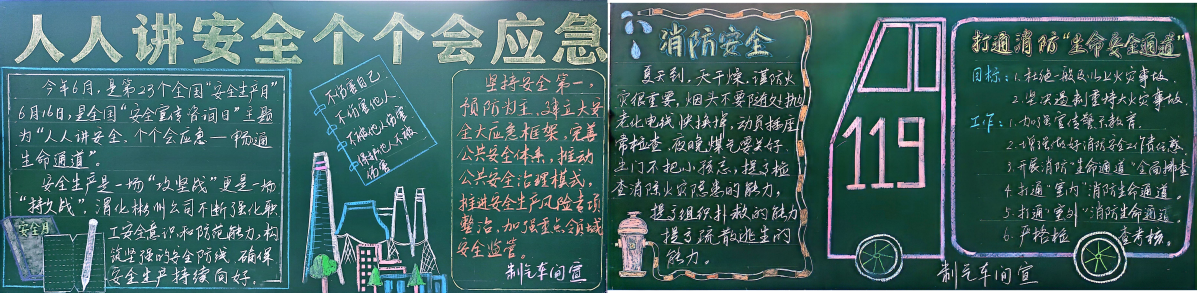 人人讲安全个个会应急
今年6月，是第23个全国“安全生产月”
6月16日，是全国“安全宣传咨询日”主题
为“人人讲安全、个个会应急—畅通
生命通道”。
安全生产是一场“攻坚战”更是一场
“持久战”，渭化彬州公司不断强化职
工安全意识和防范能力，构
筑坚强的安全防线，确保
安全生产持续向好。
安全月
不伤害自己
不伤害他人
不被他人伤害
保护他人不被
伤害
坚持安全第一，
预防为主，建立大安
全大应急框架，完善
公共安全体系，推动
公共安全治理模式，
推进安全生产风险专项
整治，加强重点领域
安全监管。
制气车间宣
消防安全
夏天到，天干燥，谨防火
灾很重要，烟头不要随处抛
老化电线快换掉，动员插座
常检查，夜晚煤气要关好，
出门不把小孩忘，提高检
查消除火灾隐患的能力，
提高组织扑救的能力
提高疏散逃生的
能力。
119
打通消防“生命安全通道”
目标：1.杜绝一般及以上火灾事故。
2.坚决遏制重特大火灾事故。
工作：1.加强宣传警示教育。
2.增强做好消防安全工作责任感
3.开展消防“生命通道”全面排查
4.打通“室内”消防生命通道。
5.打通“室外”消防生命通道
6.严格检 查考核。
制气车间宣